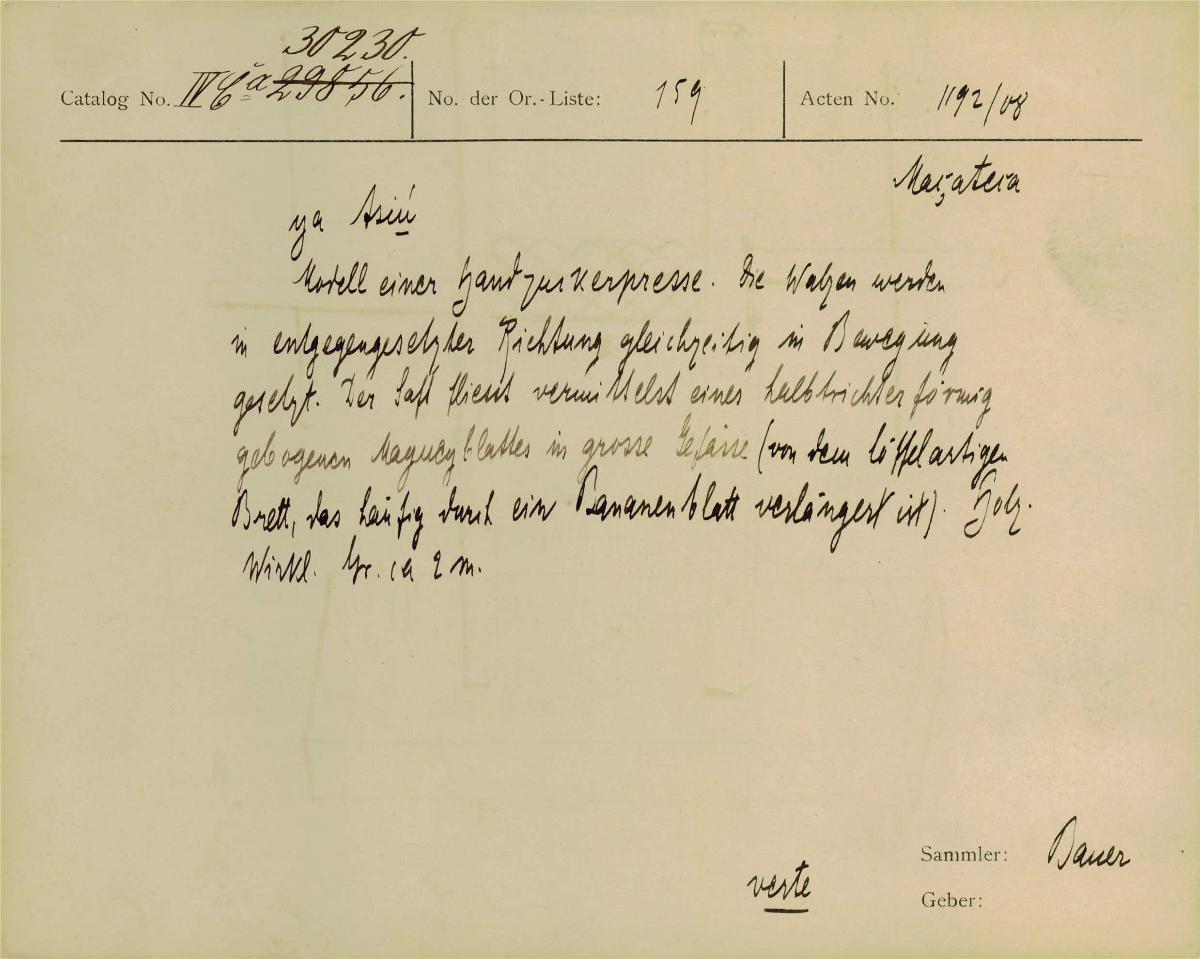 30230.
Catalog No. IV Ca 29856. No. der Or.-Liste: 159 Acten No. 1192/08
Maz̧ateca
ya tsiń
Modell einer Handzuckerpresse. Die Walzen werden
in entgegengesetzter Richtung gleichzeitig in Bewegung
gesetzt. Der Saft fliesst vermittelst eines halbtrichterförmig
gebogenen Magueyblattes in grosse Gefässe (von dem löffelartigen
Brett, das häufig durch ein Bananenblatt verlängert ist). Holz.
Wirkl. Gr. ca 2 m.
Sammler: Bauer
verte
Geber: